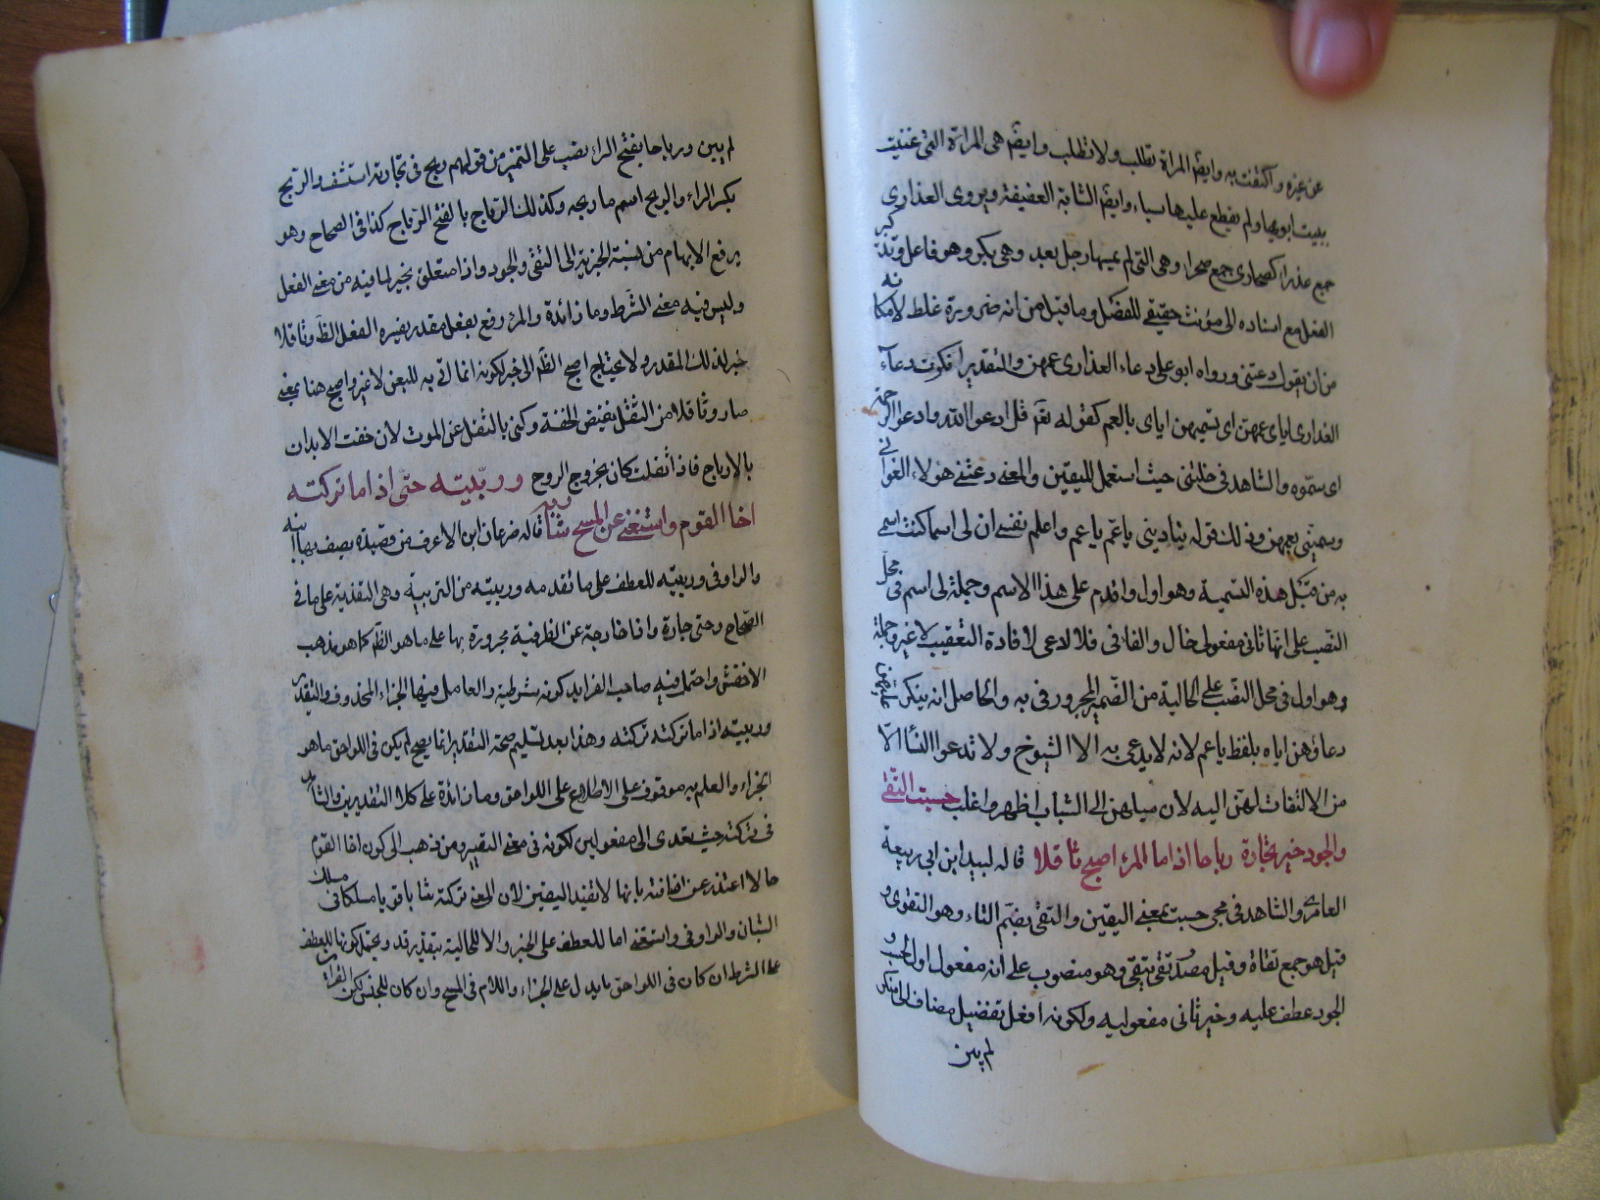 عن غيره واكتفت به وايضا المراة تطلب ولا تطلب وايضا هى المراة التى غنيت
ببيت ابويها ولم يقطع عليها سباء وايضا الشابة العفيفة ويروى العذارى
جمع عذرا كصحارى جمع صحرا وهى التى لم يمسها رجل بعد وهى بكر وهو فاعل وتذكير
الفعل مع اسناده الى مؤنث حقيقى للفصل وما قيل من انه ضرورة غلط لامكانه
من ان يقول دعتنى ورواه ابو على دعاء العذارى عمهن والتقدير انكرت دعاء
العذارى اياى عمهن اى تسميهن اياى بالعم كقوله تعا قل ادعوا الله او ادعوا الرحمن
اى سموه والشاهد فى خلتنى حيث استعمل لليقين والمعنى دعتنى هولاء الغوانى
وسميتنى بعمهن وذلك قوله ينادينى ياعم ياعم واعلم نفسى ان لى اسما كنت اسمى
به من قبل هذه التسمية وهو اول واقدم على هذا الاسم وجملة لى اسم فى محل
النصب على انها ثانى مفعولى خال والفا فى فلا ادعى لافادة التعقيب لا غير وجملة
وهو اول فى محل النصب على الحالية من الضمير المجرور فى به والحاصل انه ينكر
دعاؤهن اياه بلفظ ياعم لانه لا يدعى به الا الشيوخ ولا تدعوا النسا الا
من الالتفات لهن اليه لان ميلهن الى الشباب اظهر واغلب حسبت التقى
والجود خير تجارة رباحا اذا ما المرء اصبح ثاقلا قاله لبيد ابن ابى ربيعة
العامرى والشاهد فى مجى حسبت بمعنى اليقين والتقى بضم التاء وهو التقوى و
قيل هو جمع تقاة وقيل مصدر تقى يتقى وهو منصوب على انه مفعول اول لحسب و
الجود عطف عليه وخير ثانى مفعوليه ولكونه افعل تفضيل مضاف الى منكر
لم يبن
لم يبن ورباحا بفتح الراء نصب على التميز من قولهم ربح فى تجارته استشف والربح
بكسر الراء والربح اسم ما ربحه وكذلك الرباح بالفتح الرباح كذا فى الصحاح وهو
يرفع الابهام من نسبة الخيرية الى التقى والجود واذا متعلق بخير لما فيه من معنى الفعل
وليس فيه معنى الشرط وما زائدة والمرء رفع بفعل مقدر يفسره الفعل الظ وثاقلا
خبر لذلك المقدر ولا يحتاج اصبح الظ الى خبر لكونه انما اتى به للتبعين لا غير واصبح هنا بمعنى
صار وثاقلا من الثقل نقيض الخفة وكنى بالثقل عن الموت لان خفت الابدان
بالارباح فاذا ثقلت كان بخروج الروح وربيته حتى اذا ما تركته
اخا القوم واستغنى عن المسح شاربه قاله فرعان ابن الاعرف من قصيدة يصف بها ابنه
والواو فى وربيته للعطف على ما تقدمه وربيته من التربية وهى التغذية على ما فى
الصحاح وحتى جارة واذا خارجة عن الظرفية مجرورة بها على ما هو الظ كما هو مذهب
الاخفش واحتمل فيه صاحب الفرايد كونه شرطية والعامل فيها الجزاء المحذوف والتقدير
وربيته اذا ما تركته تركته وهذا بعد تسليم صحة التقدير انما يصح لم يكن فى اللواحق ما هو
الجزاء والعلم به موقوف على الاطلاع على اللواحق وما زائدة على كلا التقديرين والشاهد
فى تركته حيث تعدى الى مفعولين لكونه فى معنى التصيير ومن ذهب الى كون اخا القوم
حالا اعتذر عن اضافته بانها لا تفيد اليقين لان المعنى تركته شابا قويا مسلكا فى مسلك
الشبان والواو فى واستغنى اما للعطف على الخبر والا للحالية بتقدير قد ويحتمل كونها للعطف
على الشرط ان كان فى اللواحق ما يدل على الجزاء واللام فى المسح وان كان للجنس لكن القراين